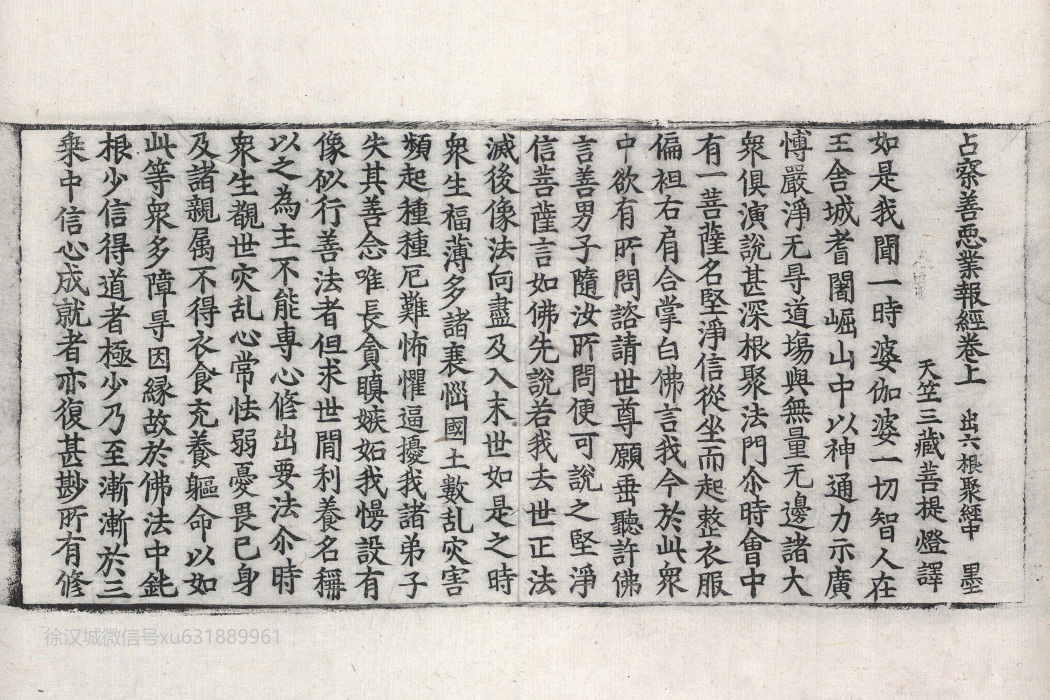 占察善悪業報經卷上 出六根聚經中 墨
天竺三藏菩提燈譯
如是我聞一時婆伽婆一切智人在
王舍城耆闍崛山中以神通力示廣
博嚴淨无㝵道場與無量无邊諸大
衆俱演說甚深根聚法門尒時會中
有一菩薩名堅淨信從坐而起整衣服
偏袒右肩合掌白佛言我今於此衆
中欲有所問諮請世尊願垂聽許佛
言善男子隨汝所問便可說之堅淨
信菩薩言如佛先說若我去世正法
滅後像法向盡及入末世如是之時
衆生福薄多諸衰惱國土數乱灾害
頻起種種厄難怖懼逼擾我諸弟子
失其善念唯長貪瞋嫉妬我慢設有
像似行善法者但求世間利養名稱
以之為主不能專心修出要法尒時
衆生覩世灾乱心常怯弱憂畏已身
及諸親属不得衣食充養軀命以如
此等衆多障㝵因緣故於佛法中鈍
根少信得道者極少乃至漸漸於三
乗中信心成就者亦復甚尠所有修
徐汉城微信号xu631889961